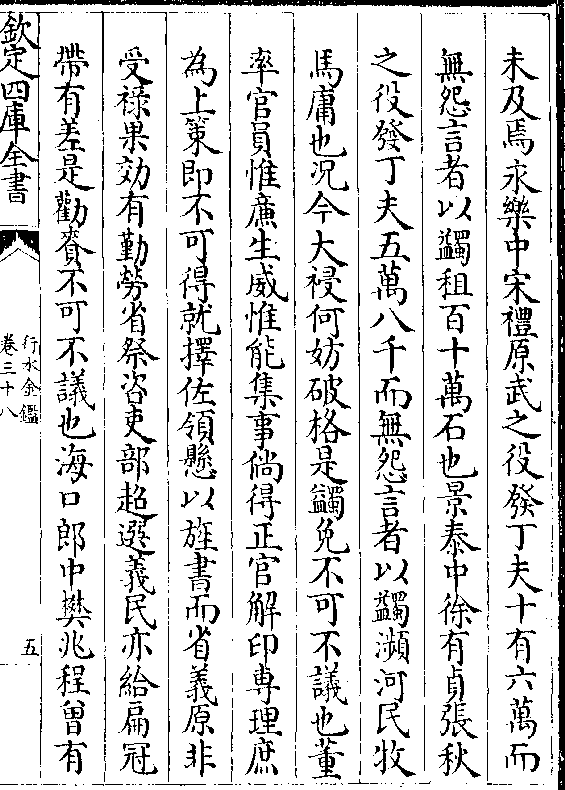 未及焉永樂中宋禮原武之役發丁夫十有六萬而
無怨言者以蠲租百十萬石也景泰中徐有貞張秋
之役發丁夫五萬八千而無怨言者以蠲瀕河民牧
馬庸也況今大祲何妨破格是蠲免不可不議也董
率官員惟廉生威惟能集事倘得正官解印專理庶
為上策即不可得就擇佐領懸以旌書而省義原非
受祿果効有勤勞省祭咨吏部超選義民亦給扁冠
帶有差是勸賚不可不議也海口郎中樊兆程曽有
欽定四庫全書
行水金鑑
卷三十八
五